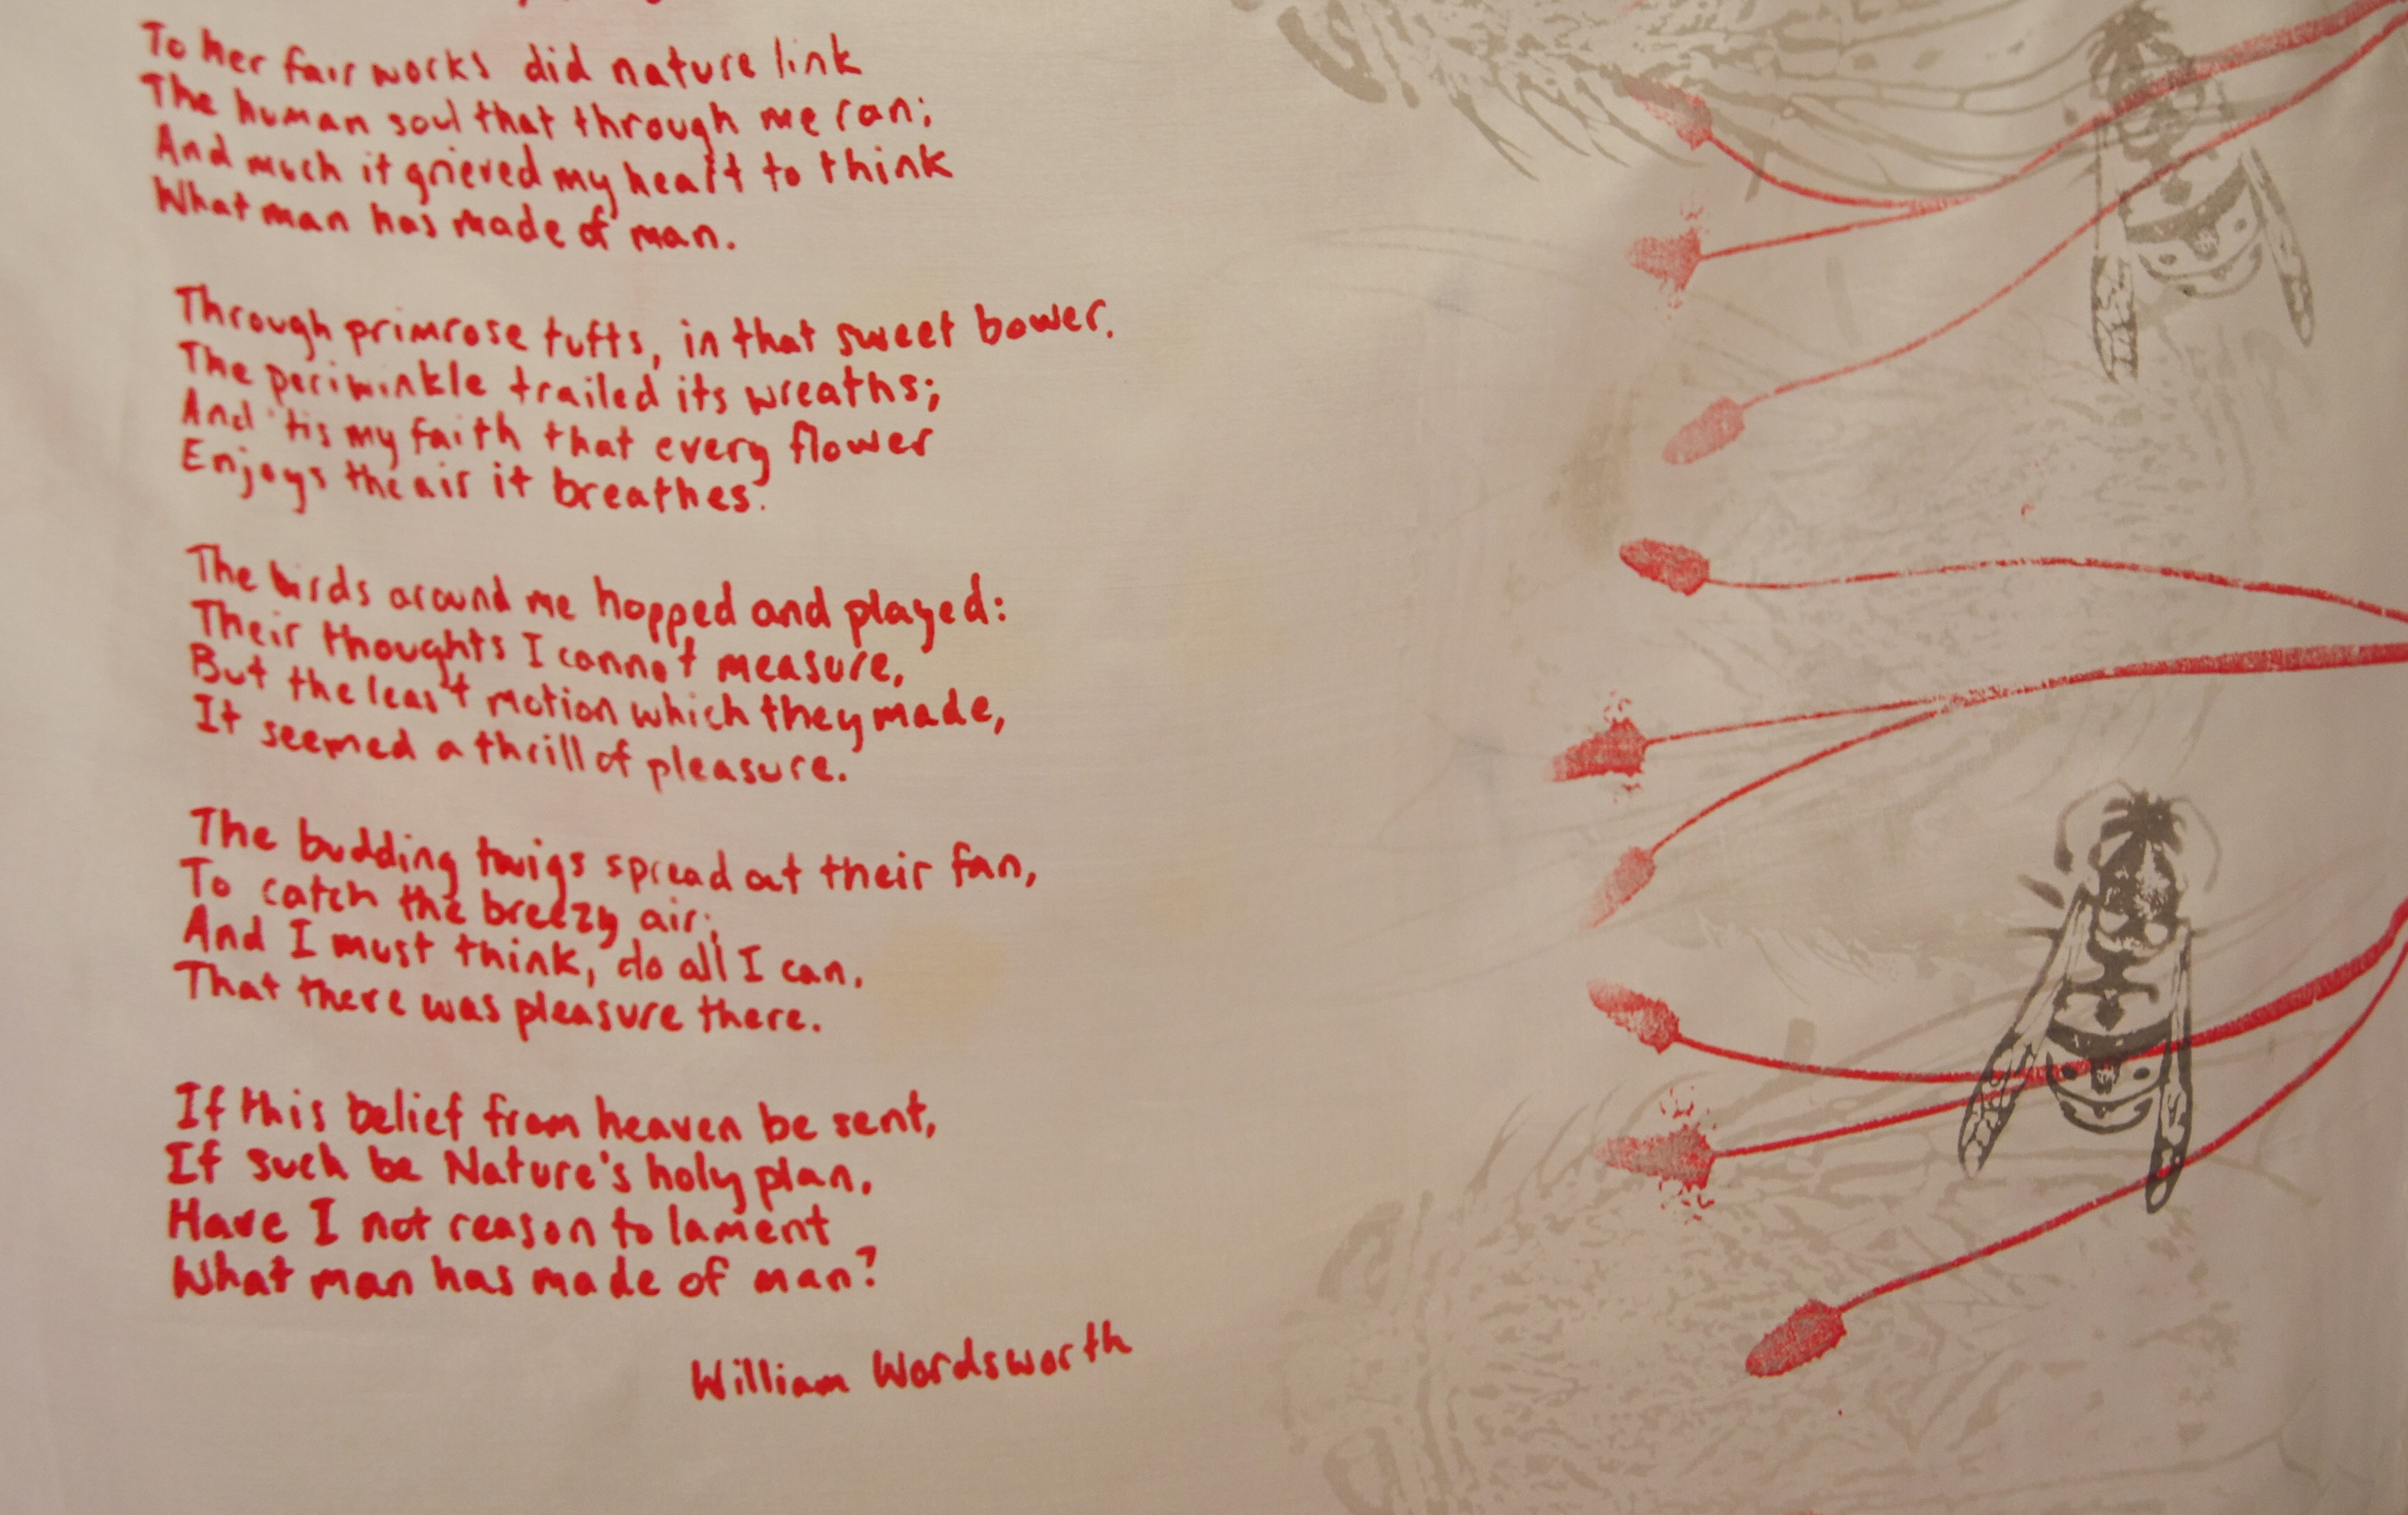 To her fair works did nature link
The human soul that through me ran;
And much it grieved my heart to think
What man has made of man.
Through primrose tufts, in that sweet bower.
The periwinkle trailed its wreaths;
And 'tis my faith that every flower
Enjoys the air it breathes.
The birds around me hopped and played:
Their thoughts I cannot measure,
But the least motion which they made,
It seemed a thrill of pleasure.
The budding twigs spread out their fan,
To catch the breezy air;
And I must think, do all I can,
That there was pleasure there.
If this belief from heaven be sent,
If such be Nature's holy plan,
Have I not reason to lament
What man has made of man?
William Wordsworth